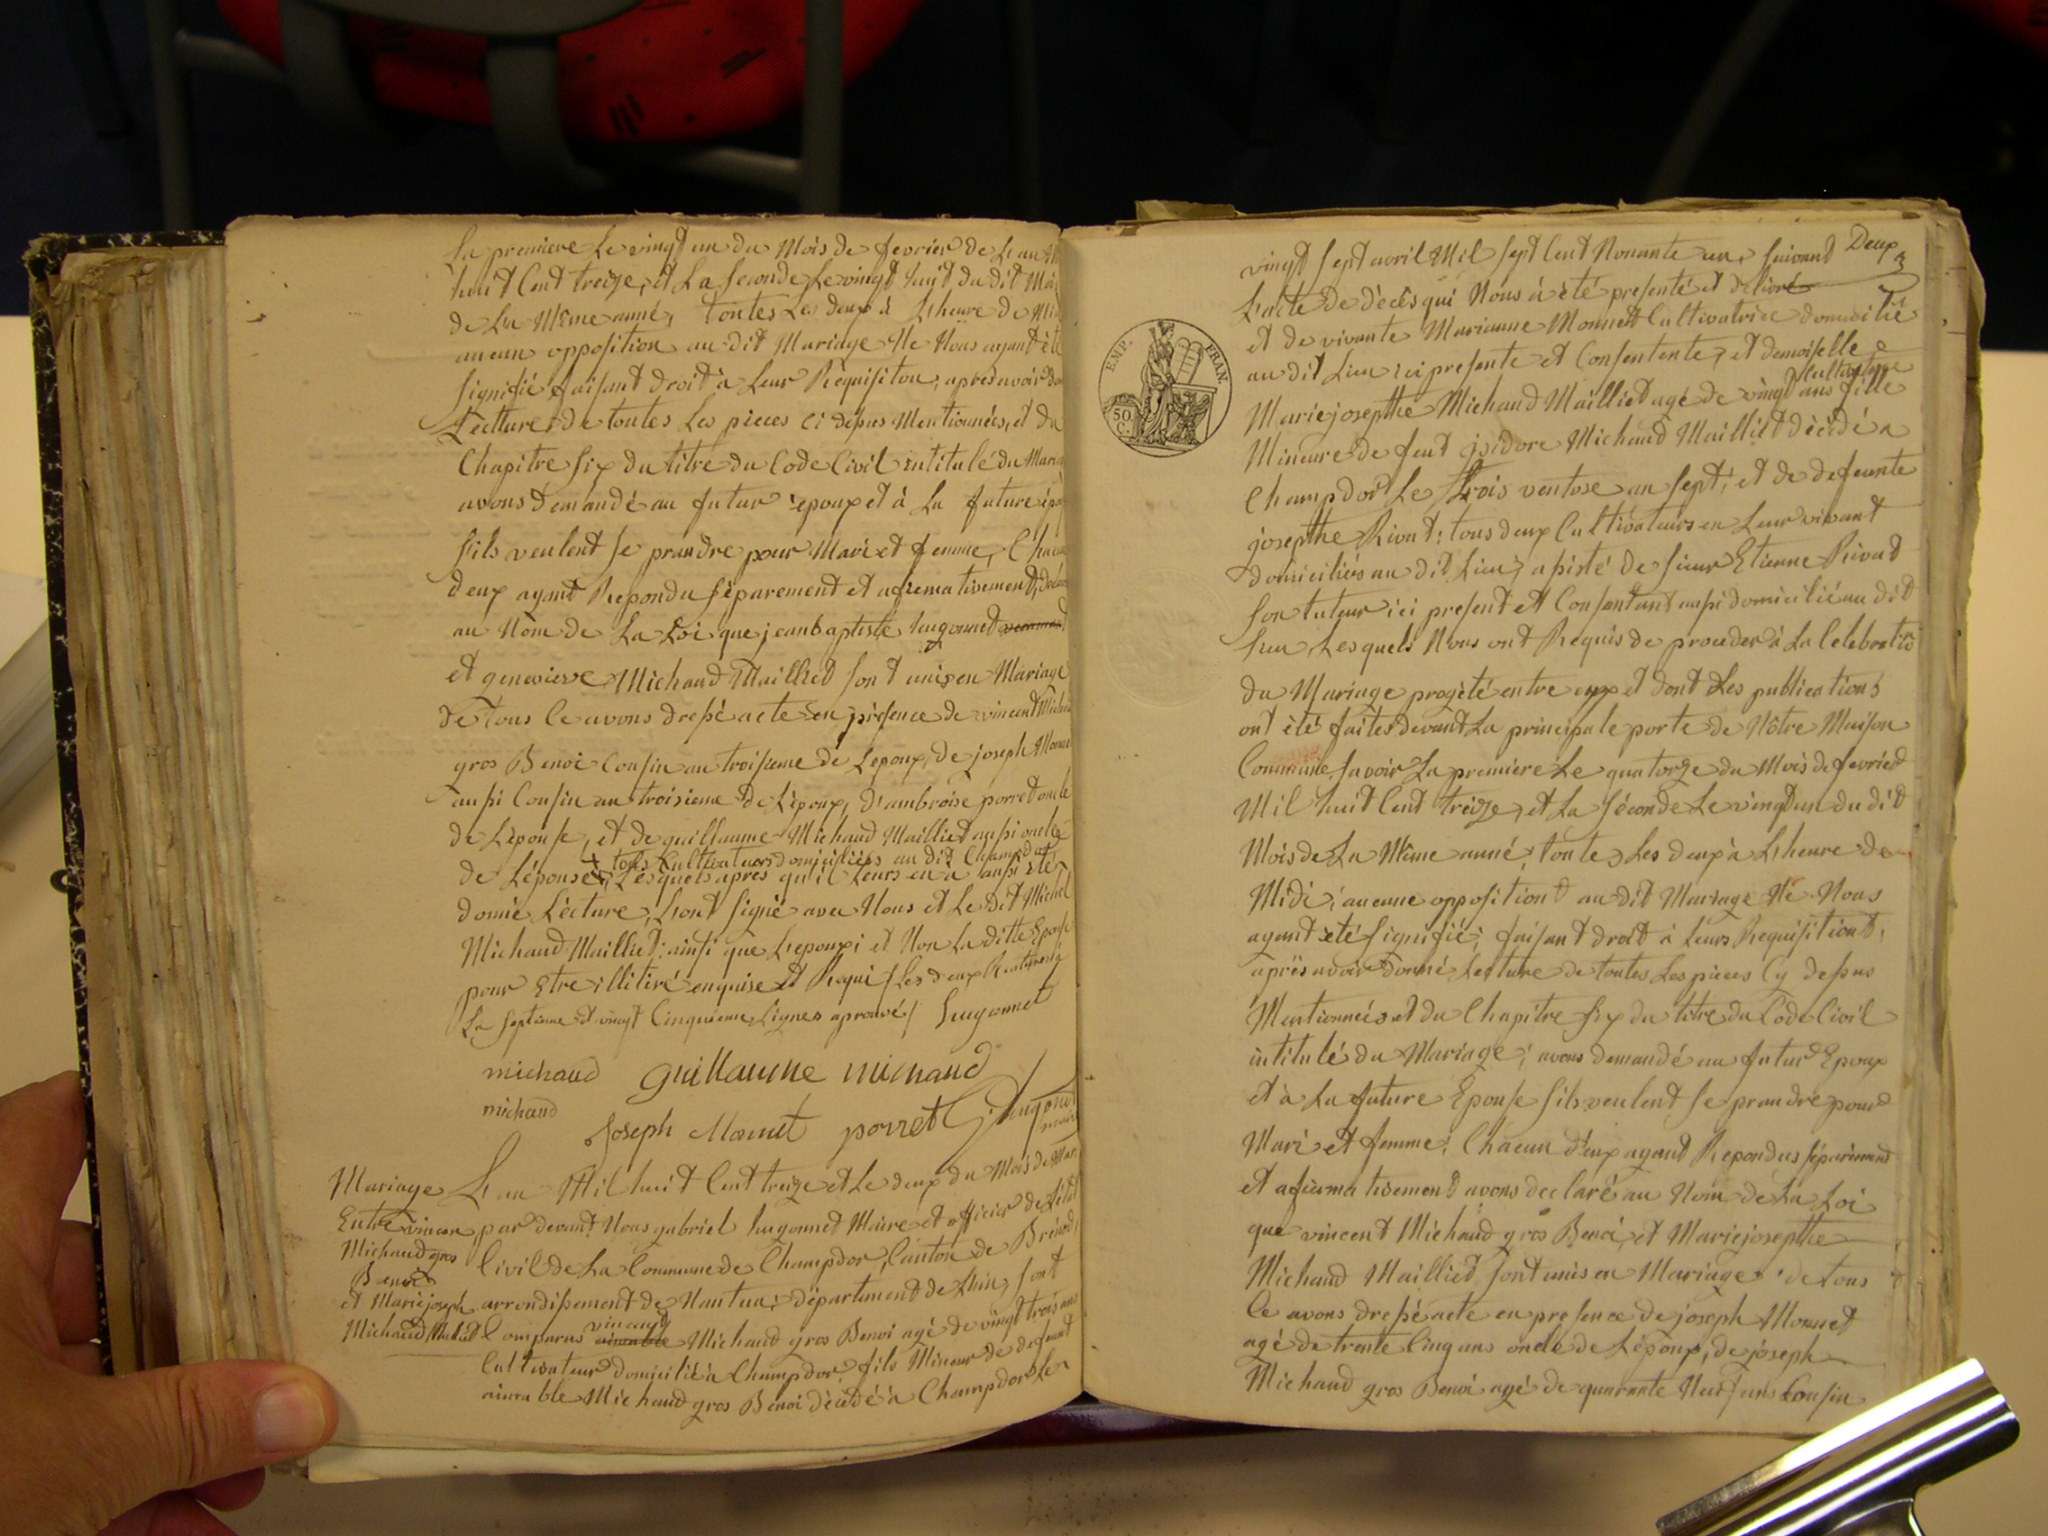 La premiere Le vingt un du Mois de fevrier de L'an
huit Cent treize, et La seconde Le vingt huit du dit
de La Même anné, toutes Les deux à L'heure de
aucun opposition au dit Mariage Ne Nous ayant été
Signifié faisant droit à Leur Requisition, apres avoir
Lecture de toutes Les pieces ci depus Mentionnées, et du
Chapitre six du titre du Code Civil intitulé du
avons demandé au futur époux et à La future
s'ils veulent se prandre pour Mari et femme, Chacun
deux ayant Repondu séparement et afirmativement,
au Nom de La Loi que jean baptiste hugonnet
et genevieve Michaud Mailliet sont unis en Mariage
de tous Ce avons dressé acte en présence de vincent
gros Benoi Cousin au troisieme de L'epoux, de joseph
aussi Cousin au troisieme de L'époux, d'ambroise porret oncle
de L'épouse, et de guillaume Michaud Mailliet aussi oncle
tous Cultivateurs domiciliés au dit Champdor
de L'épouse, Lesquels apres qu'il Leurs en a aussi été
donné Lécture, L'ont signé avec Nous et Le dit Michel
Michaud Mailliet ainsi que L'epoux et Non La ditte Epouse
pour Etre illitiré enquise et Requi Les deux
La septieme et vingt Cinquieme Lignes aprouvé Hugonnet
michaud guillaume michaud
michaud
Joseph Monnet porret hugonnet
maire
Mariage
Entre vincent
Michaud gros
Benoi
et Marie joseph
Michaud Mailliet
L'an Mil huit Cent treize et Le deux du Mois de
par devant Nous gabriel hugonnet Maire et officier de L'état
Civil de La Commune de Champdor, Canton de Brénod,
arrondissement de Nantua, département de L'ain, sont
vincent
Comparus aimable Michaud gros Benoi agé de vingt trois ans
Cultivateur domicilié à Champdor, fils Mineur de defeunt
aimable Michaud gros Benoi décédé à Champdor Le
Deux
vingt sept avril Mil sept Cent Nonante un, suivant
L'acte de décés qui Nous à été presenté et délivré
et de vivante Marianne Monnet Cultivatrice domicilié
au dit Lieu ici presente et Consentente, et demoiselle
Cultivatrice
Marie josepthe Michaud Mailliet agé de vingt ans fille
Mineure de feut isidore Michaud Mailliet décédé a
Champdor Le trois ventose an sept, et de defeunte
josepthe Rivat, tous deux Cultivateurs en Leur vivant
domiciliés au dit Lieu, assisté de sieur Etienne Rivat
son tuteur ici present et Consentant aussi domicilié au dit
Lieu, Lesquels Nous ont Requis de proceder à La Celebration
du Mariage progété entre eux et dont Les publications
ont été faites devant La principale porte de Nôtre Maison
Commune, savoir La premiere Le quatorze du Mois de fevrier
Mil huit Cent treize, et La séconde Le vingt un du dit
Mois de La Même anné, toutes Les deux à L'heure de
Midi, aucune opposition au dit Mariage Né Nous
ayant été signifié, faisant droit à Leurs Requisitiont,
après avoir donné Lecture de toutes Les pieces Cy depus
Mentionnées et du Chapitre six du titre du Code Civil
intitulé du Mariage, avons demandé au futur Epoux
et à La future Epouse s'ils veulent se prandre pour
Mari et femme, Chacun d'eux ayant Repondus séparément
et afirmativement avons declaré au Nom de La Loi
que vincent Michaud gros Benoi, et Marie josepthe
Michaud Mailliet sont unis en Mariage, de tous
Ce avons dressé acte en presence de joseph Monnet
agé de trente Cinq ans oncle de L'époux, de joseph
Michaud gros Benoi agé de quarante Neuf ans Cousin
EMP. FRAN.
50
C.